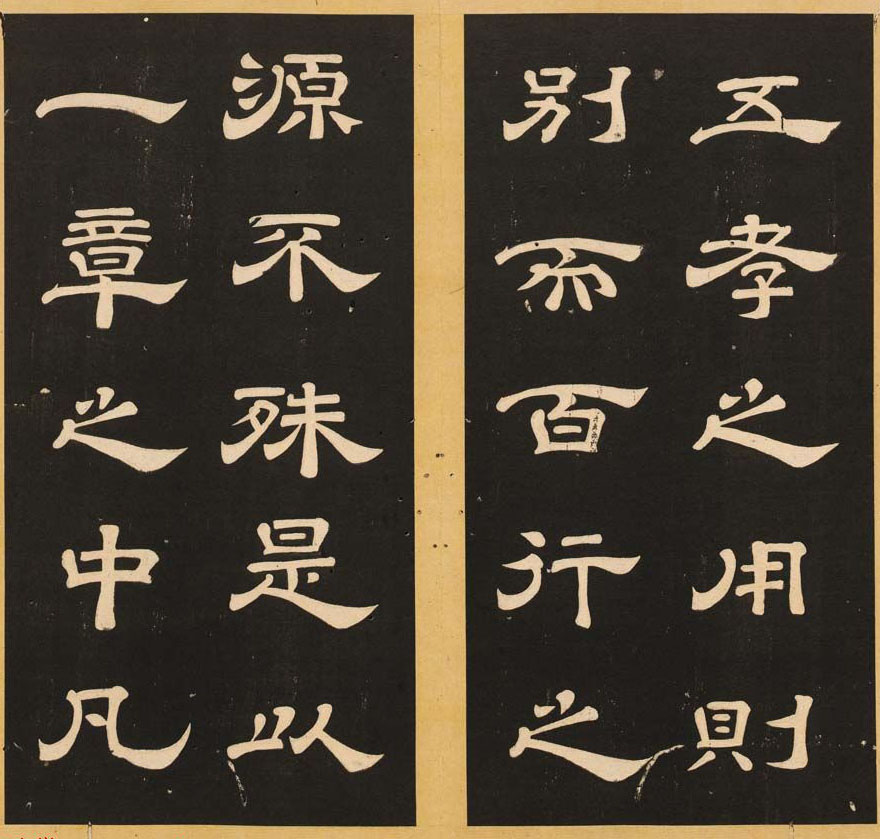 五孝之用則
別而百行之
源不殊是以
一章之中凡